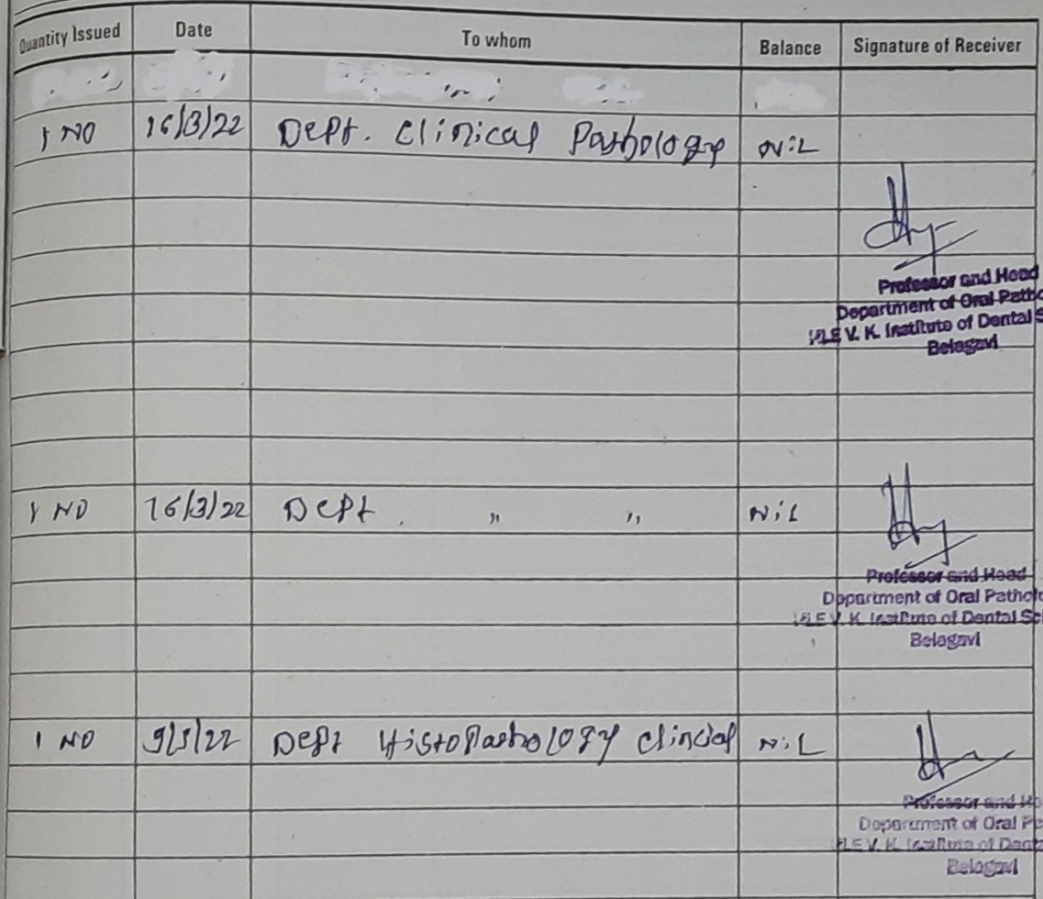 Quantity Issued Date To whom Balance Signature of Receiver
1 NO 16/3/22 Dept. Clinical Pathology Nil
Professor and Head
Department of Oral Patho
KLE V. K. Institute of Dental S
Belagavi
1 NO 16/3/22 Dept. " " Nil
Professor and Head
Department of Oral Patholo
KLE V. K. Institute of Dental Sc
Belagavi
1 NO 9/5/22 Dept Histopathology Clincial Nil
Professor and He
Department of Oral Pa
KLE V. K. Institute of Dent
Belagavi